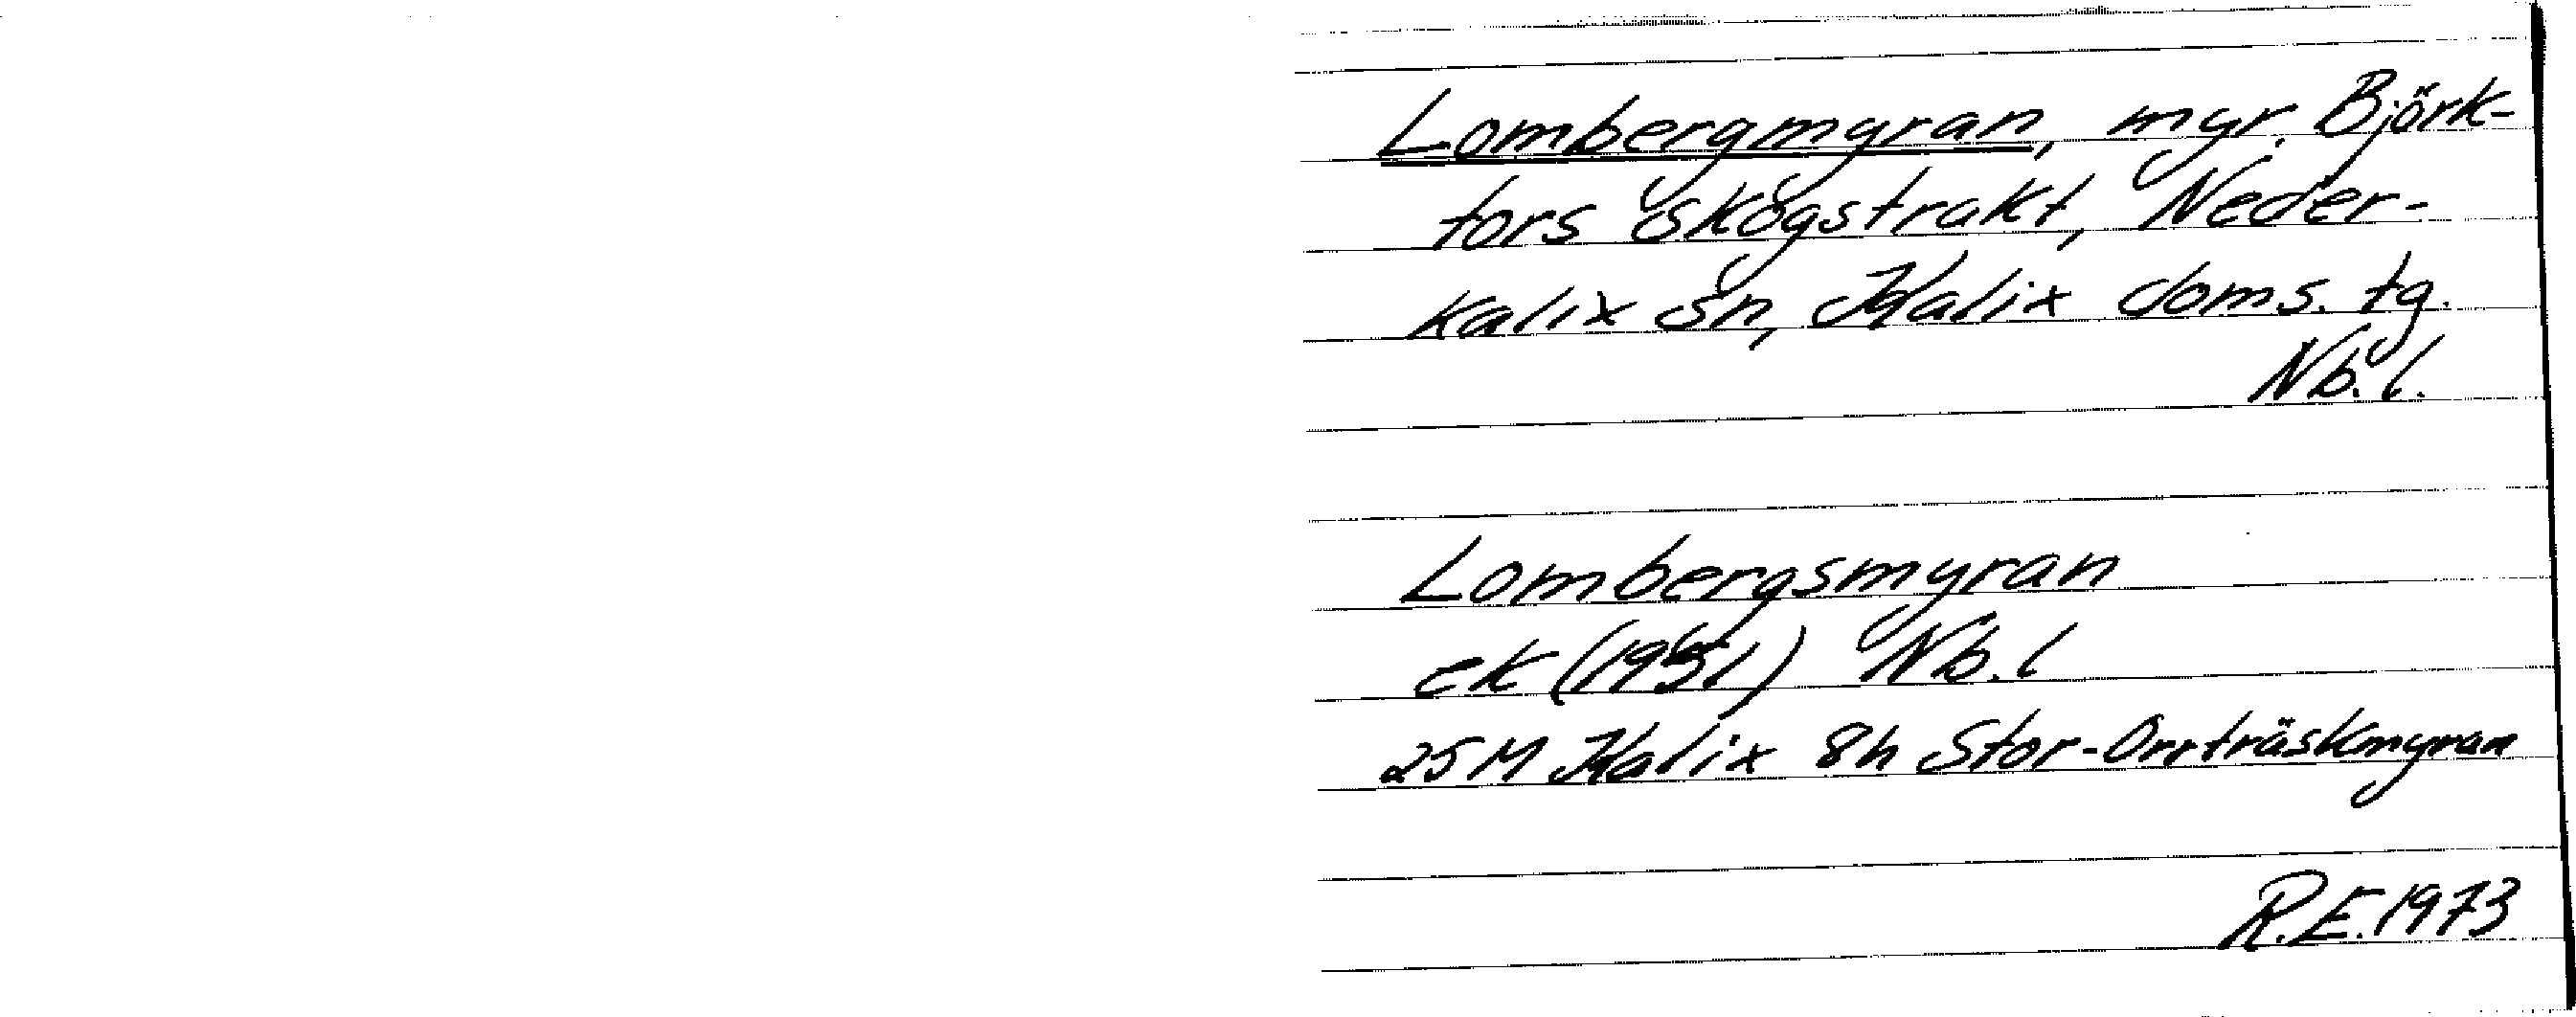 Lombergmyran, myr. Björk-
fors skogstrakt, Neder-
kalix sn, Kalix doms. tg.
Nb. l.
Lombergsmyran
ek (1951) Nb. l
25 M Kalix 8h Stor-Orrträskmyran
R.E. 1973